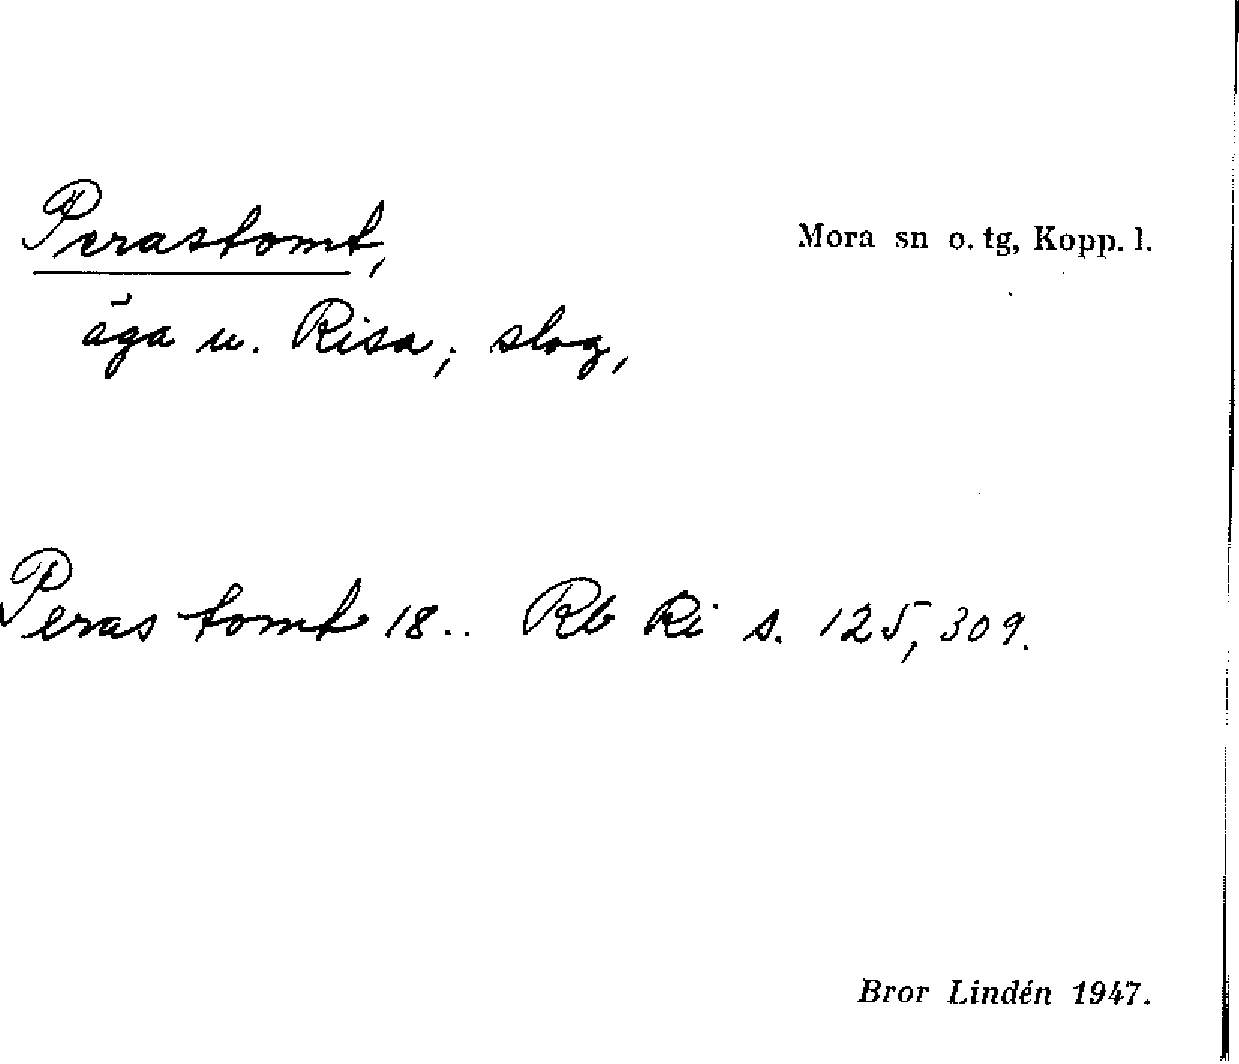 Perastomt,
Mora sn o. tg, Kopp. l.
äga u. Risa; slog,
Peras tomt 18.. Rb Ri s. 125, 309.
Bror Lindén 1947.